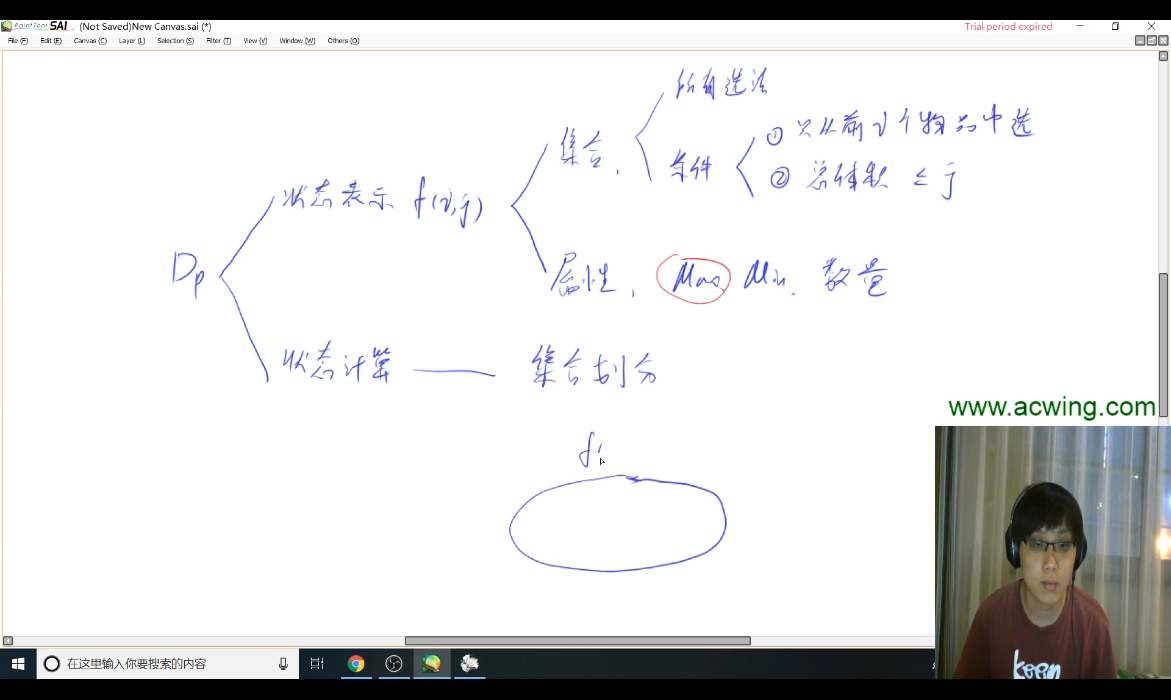 PaintTool SAI (Not Saved)New Canvas.sai (*) Trial period expired
File (F) Edit (E) Canvas (C) Layer (L) Selection (S) Filter (T) View (V) Window (W) Others (O)
所有选法
① 只从前i个物品中选
集合,
条件
② 总体积 ≤ j
状态表示 f(i,j)
Dp
属性, Max Min. 数量
状态计算 —— 集合划分
www.acwing.com
f(
在这里输入你要搜索的内容
keen